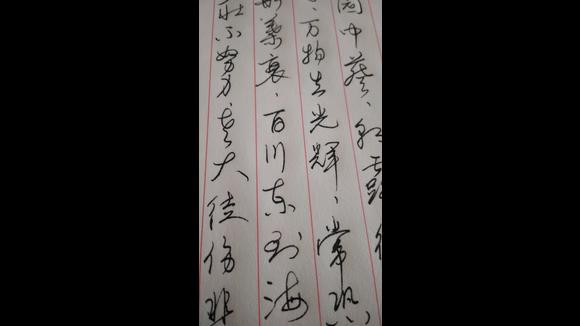 园中葵、朝露待
、万物生光輝、常恐
葉衰、百川东到海
壮不努力、老大徒伤悲